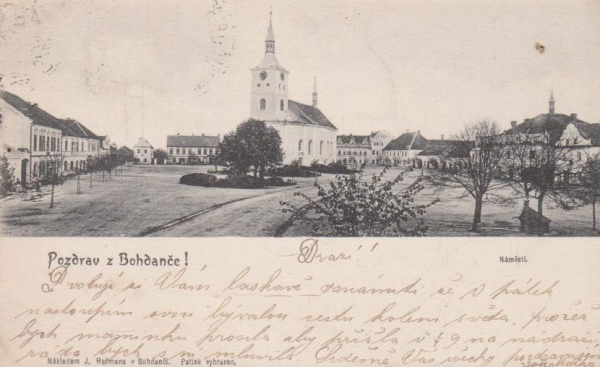 Pozdrav z Bohdanče!
Náměstí.
Drazí!
Dvoluji si Vám laskavě oznámiti že v pátek
nastoupím svou bývalou cestu kolem světa, pročež
bych maminku prosila aby přišla v 9 na nádraží,
ráda bych s ní mluvila. Srdečně Vás všecky pozdravuje
Nákladem J. Heřmana v Bohdanči. Patisk vyhrazen.